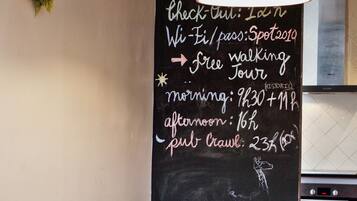 Check-Out: 12h
Wi-Fi/pass: Spot2019
free walking
Tour
morning: 9h30 + 11h
afternoon: 16h
pub Crawl: 23h